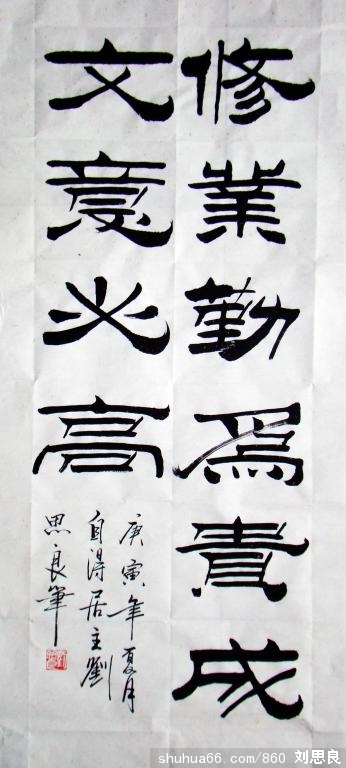 修業勤為責成
文意必高
庚寅年夏月
自得居主劉
思良筆
shuhua66.com/860 刘思良